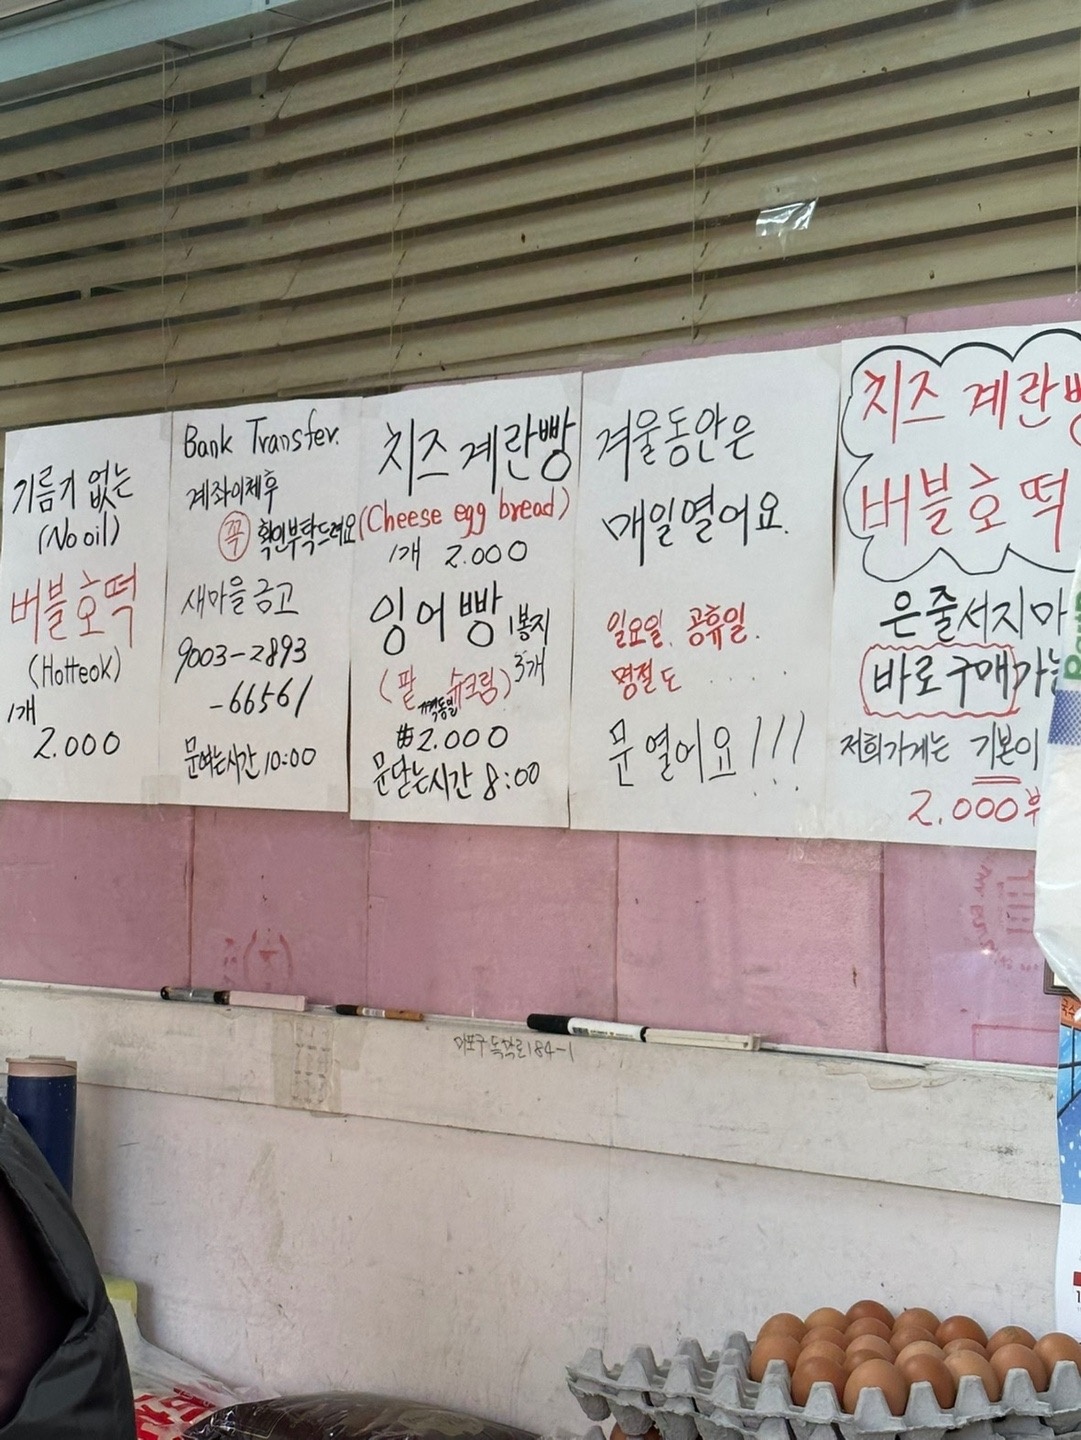 기름기 없는
(No oil)
버블호떡
(Hotteok)
1개
2.000
Bank Transfer.
계좌이체후
꼭 확인부탁드려요
새마을금고
9003-2893
-66561
문여는시간 10:00
치즈계란빵
(Cheese egg bread)
1개 2.000
잉어빵 1봉지
3개
(팥 슈크림)
가격동일
₩2.000
문닫는시간 8:00
겨울동안은
매일열어요.
일요일. 공휴일.
명절도 ......
문열어요!!!
치즈 계란
버블호떡
은줄서지마
바로구매가능
저희가게는 기본이
2.000부
마포구 독막로184-1